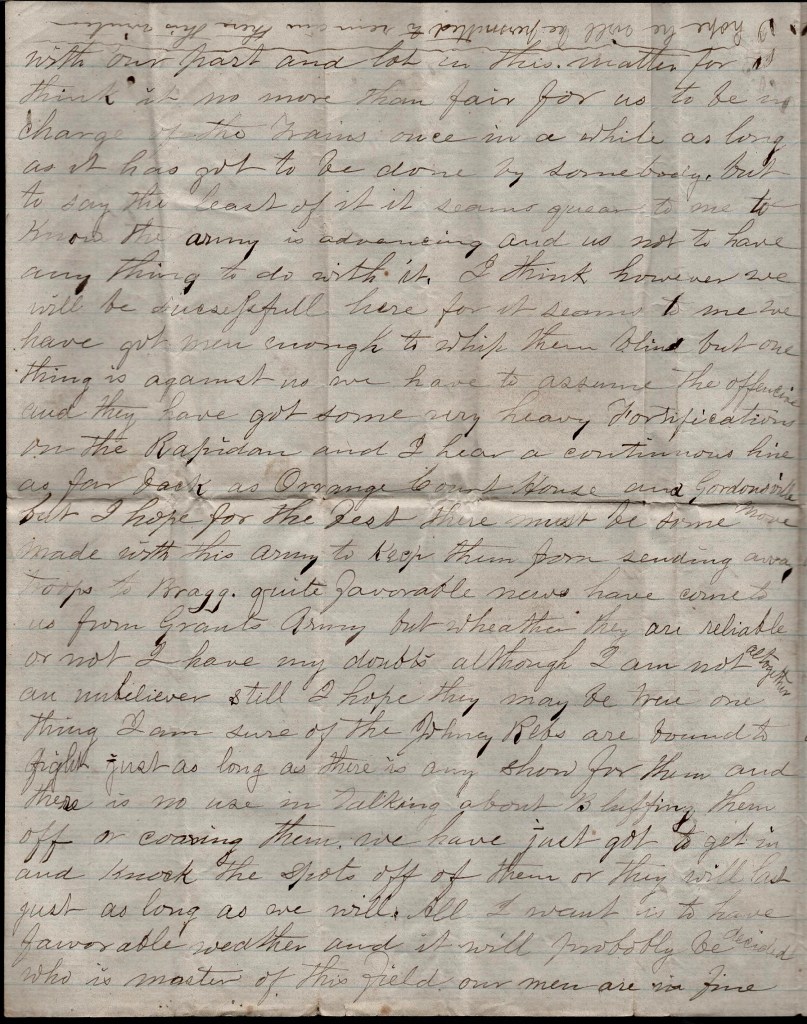 I hope he will be permitted to remain there this winter
with our part and lot in this matter for I
think it no more than fair for us to be in
charge of the Trains once in a while as long
as it has got to be done by somebody. but
to say the least of it it seams quear to me to
Know the army is advancing and us not to have
any thing to do with it. I think however we
will be sucsessfull here for it seams to me we
have got men enough to whip them blind but one
thing is against us we have to assume the offencive
and they have got some very heavy Fortifications
on the Rapidan and I hear a continuous line
as far back as Orrange Court House and Gordonsville
but I hope for the best there must be some move
made with this army to keep them from sending away
troops to Bragg. quite favorable news have come to
us from Grants Army but wheather they are reliable
or not I have my doubts although I am not altogether
an unbeliever still I hope they may be true one
thing I am sure of the Johney Rebs are bound to
fight just as long as there is any show for them and
there is no use in talking about Bluffing them
off or coaxing them. we have just got to get in
and knock the spots off of them or they will last
just as long as we will. All I want is to have
favorable weather and it will probobly be decided
who is master of this field our men are in fine